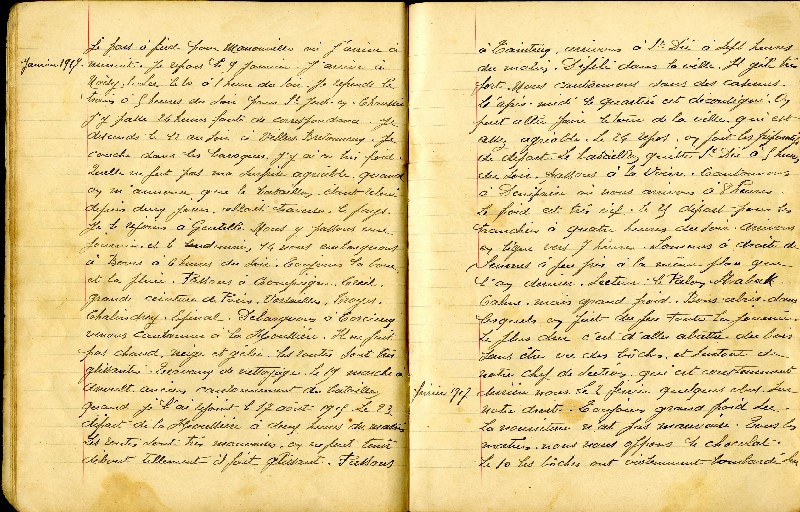 Je pars à pied pour Manonviller où j'arrive à
Janvier 1917. minuit. Je repars le 9 Janvier. J'arrive à
Noisy-le-Sec le 10 à 1 heure du soir. Je reprends le
train à 5 heures du soir pour St Just en Chaussée
J'y passe 24 heures faute de correspondance. Je
descends le 12 au soir à Villers Bretonneux. Je
couche dans les baraques, j'y ai eu bien froid.
Quelle ne fut pas ma surprise agréable quand
on m'annonce que le bataillon, étant relevé
depuis deux jours, allait traverser le pays.
Je le rejoins à Gentelle. Nous y passons une
journée et le lendemain, 14 nous embarquons
à Boves à 6 heures du soir. Toujours la boue
et la pluie. Passons à Compiègne, Creil,
grande ceinture de Paris, Versailles, Troyes,
Chalindrey, Epinal. Débarquons à Corcieux
venons cantonner à la Houssière. Il ne fait
pas chaud, neige et gelée. Les routes sont très
glissantes. Travaux de nettoyage. Le 19 marche à
ancien cantonnement du bataillon
quand je l'ai rejoint le 17 août 1915. Le 23
départ de la Houssière à deux heures du matin
Les routes sont très mauvaises, on ne peut tenir
debout tellement il fait glissant. Passons
à Taintrux, arrivons à St Dié à sept heures
du matin. Défilé dans la ville. Il gèle très
fort. Nous cantonnons dans des casernes.
Le après-midi le quartier est déconsigné. On
peut aller faire le tour de la ville, qui est
assez agréable. Le 24 repos, on fait les préparatifs
de départ. Le bataillon quitte St Dié à 5 heures
du soir. Passons à la Voivre. Cantonnons
à Denipaire où nous arrivons à 8 heures.
Le froid est très vif. Le 25 départ pour les
tranchées à quatre heures du soir. Arrivons
en ligne vers 7 heures. Sommes à droite de
Senones à peu près à la même place que
l'an dernier. Secteur le
Calme, mais grand froid. Bons abris dans
lesquels on fait du feu toute la journée.
Le plus dur c'est d'aller abattre des bois
sans être vu des boches, et surtout de
notre chef de section, qui est constamment
Février 1917 derrière nous. Le 2 Février quelques obus sur
notre droite. Toujours grand froid sec.
La nourriture n'est pas mauvaise. Tous les
matins, nous nous offrons le chocolat.
Le 10 les boches ont violemment bombardé